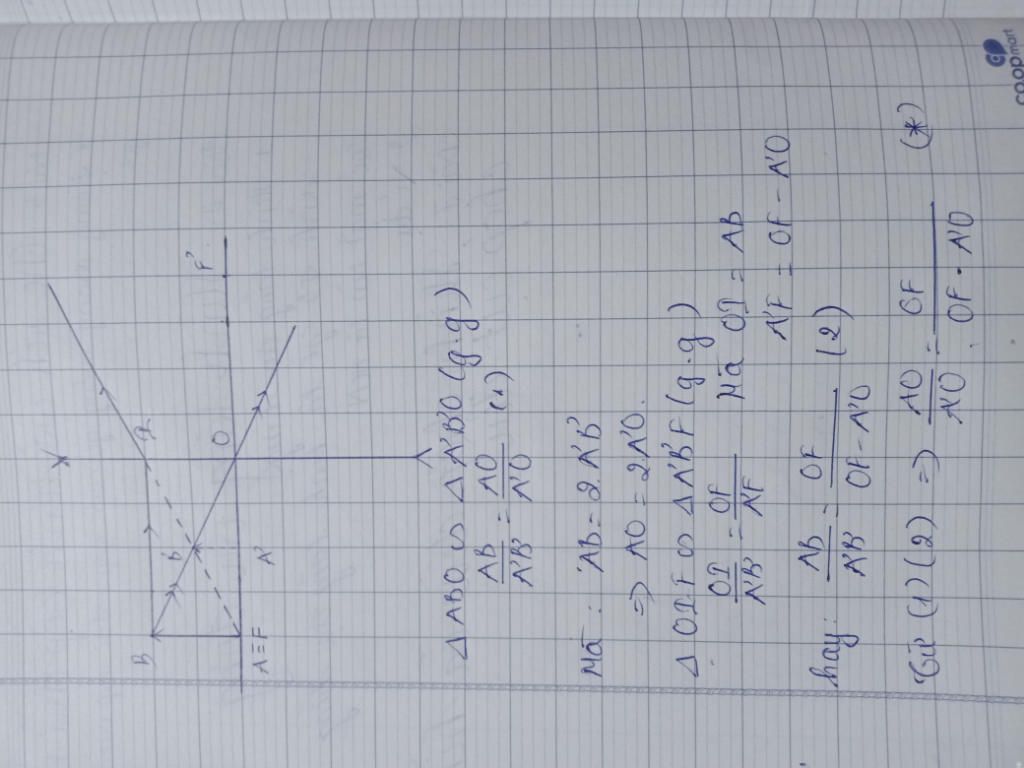 B
I
F'
B'
O
A≡F
A'
Δ ABO ∽ Δ A'B'O (g.g)
AB/A'B' = AO/A'O (1)
Mà : AB = 2A'B'
=> AO = 2A'O.
Δ OIF ∽ Δ A'B'F (g.g)
OI/A'B' = OF/A'F Mà OI = AB
A'F = OF - A'O
hay: AB/A'B' = OF/OF - A'O (2)
Từ (1) (2) => AO/A'O = OF/OF - A'O (*)
coopmart